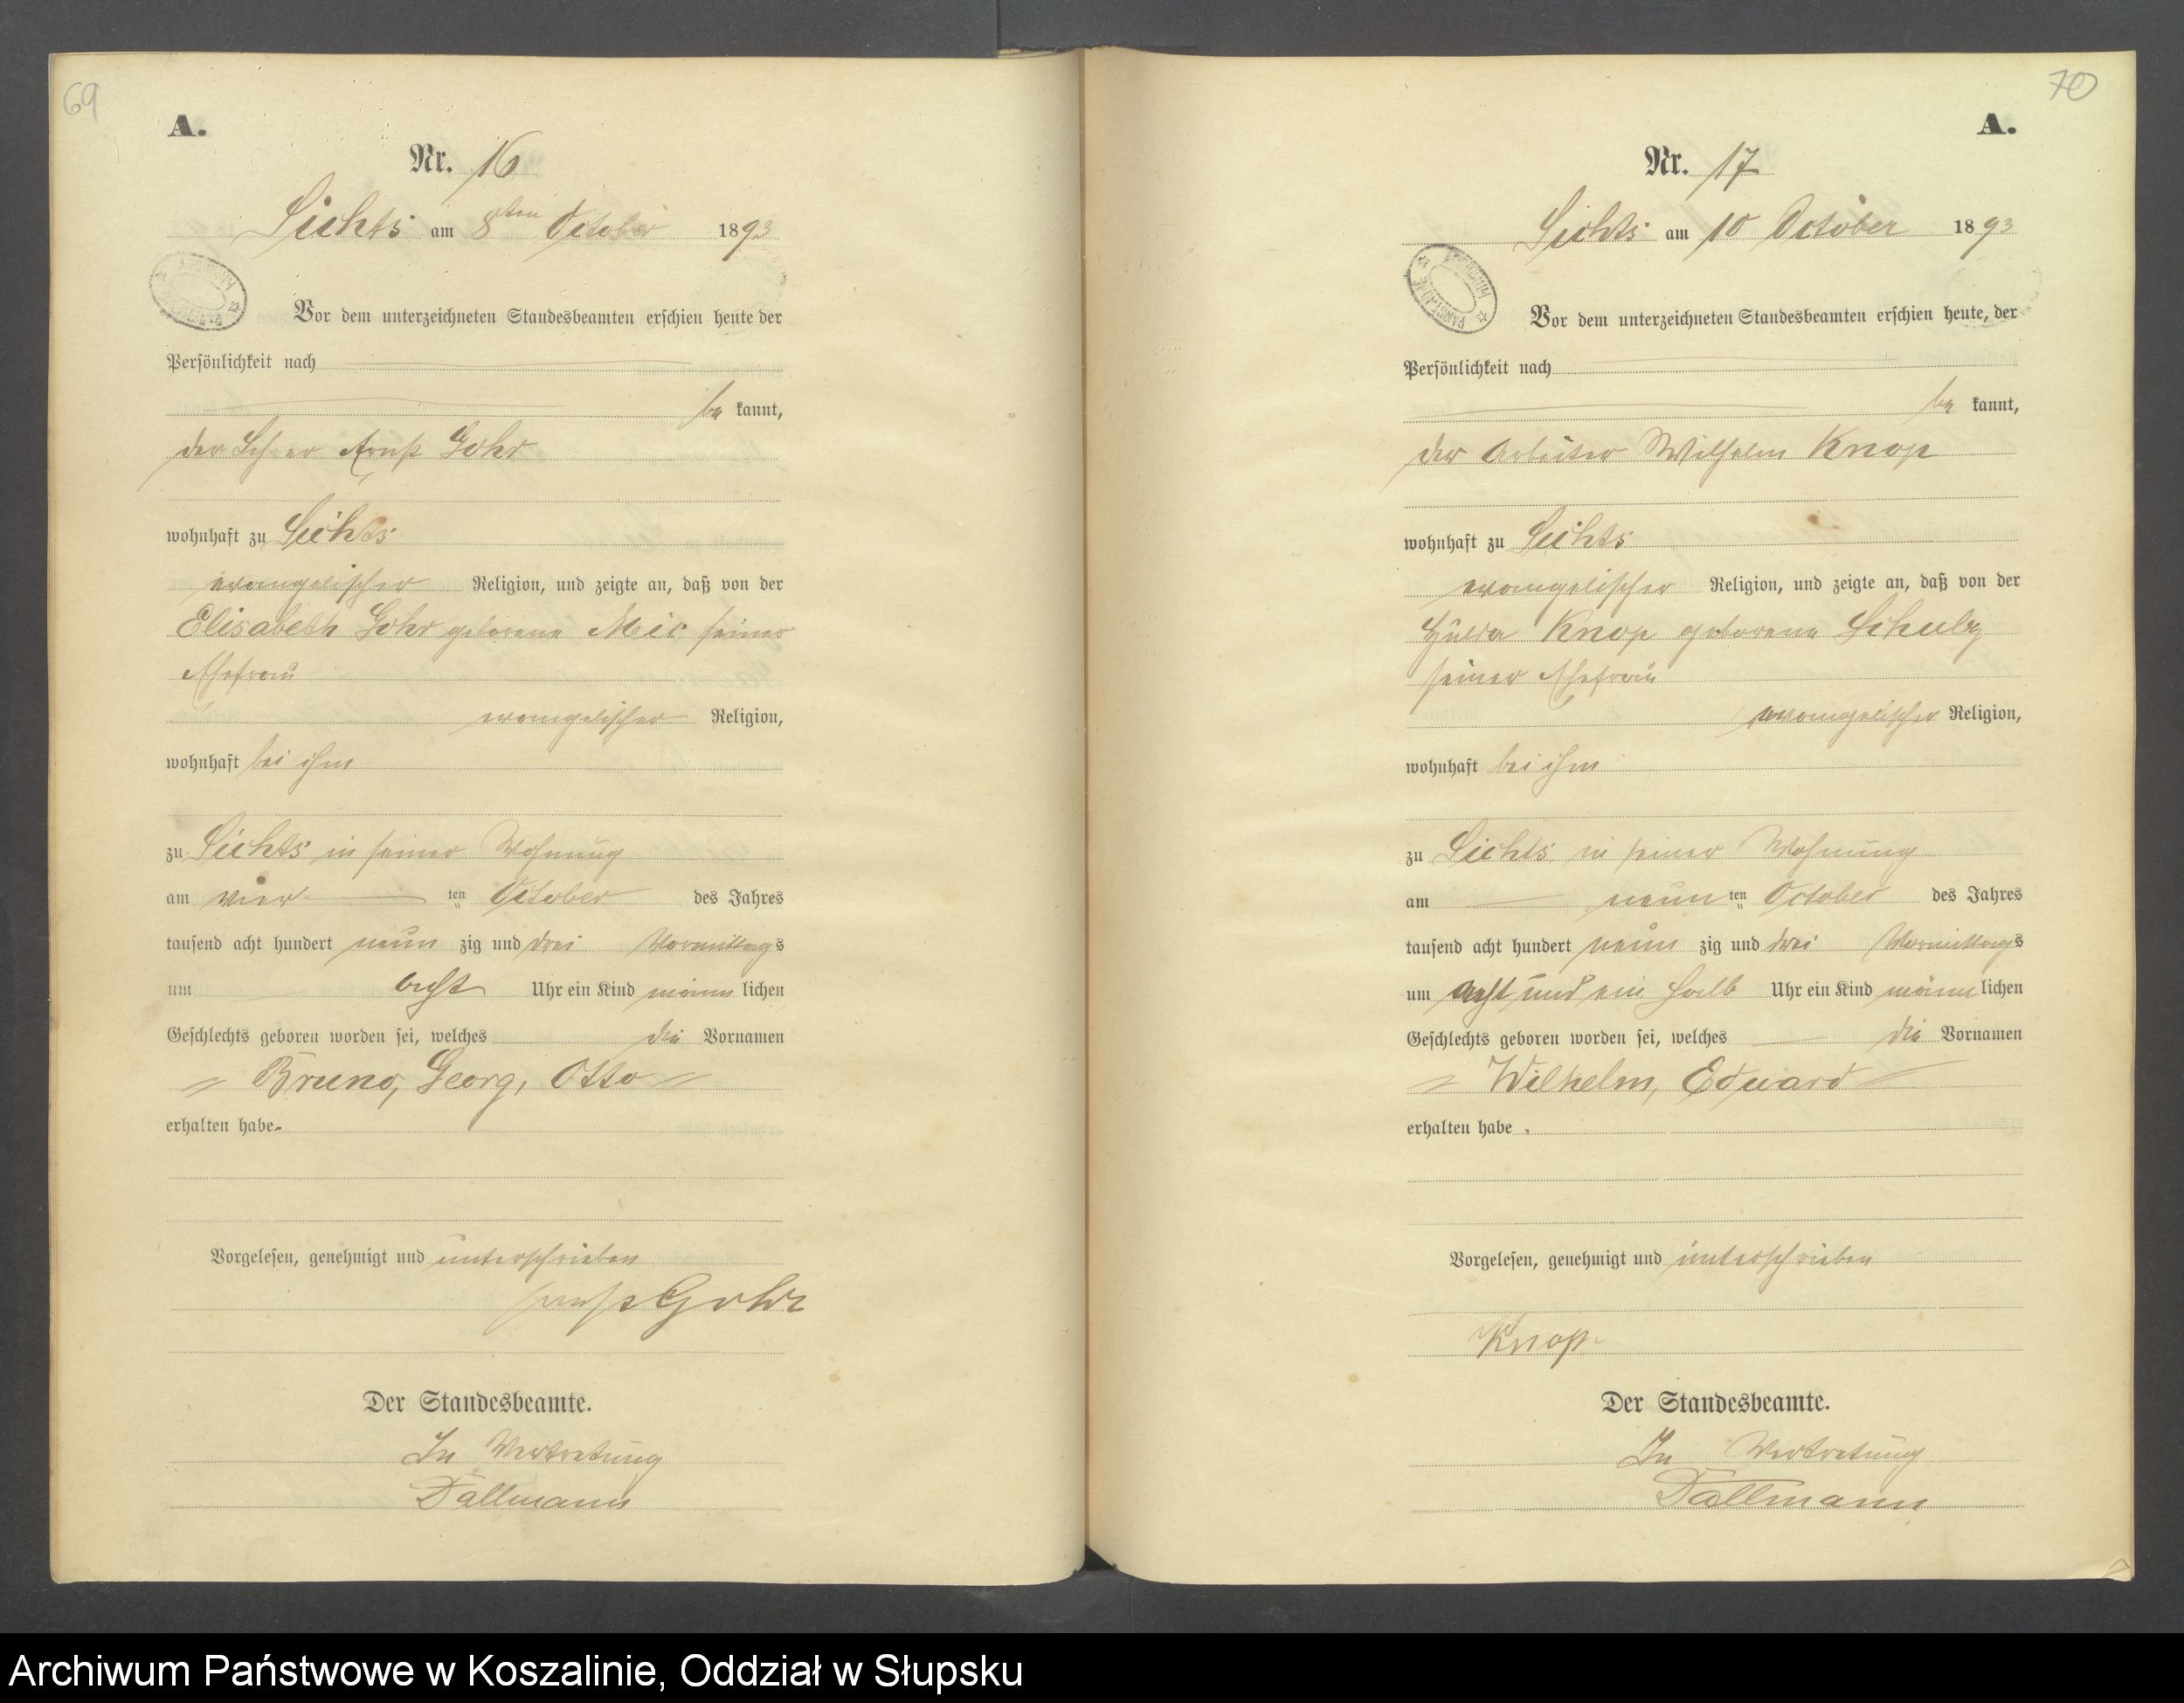 69
A.
Nr. 16
Sichts am 8ten October 1893
Vor dem unterzeichneten Standesbeamten erschien heute der
Persönlichkeit nach
be kannt,
der Lehrer Ernst Gohr
wohnhaft zu Sichts
evangelischer Religion, und zeigte an, daß von der
Elisabeth Gohr geborene seiner
Ehefrau
evangelischer Religion,
wohnhaft bei ihm
zu Sichts in seiner Wohnung
am vier ten October des Jahres
tausend acht hundert neun zig und drei Vormittags
um acht Uhr ein Kind männ lichen
Geschlechts geboren worden sei, welches die Vornamen
Bruno, Georg, Otto
erhalten habe.
Vorgelesen, genehmigt und unterschrieben
Ernst Gohr
Der Standesbeamte.
In Vertretung
Dallmann
70
A.
Nr. 17
Sichts am 10 October 1893
Vor dem unterzeichneten Standesbeamten erschien heute, der
Persönlichkeit nach
be kannt,
der Arbeiter Wilhelm Knop
wohnhaft zu Sichts
evangelischer Religion, und zeigte an, daß von der
Hulda Knop geborene Schulz
seiner Ehefrau
evangelischer Religion,
wohnhaft bei ihm
zu Sichts in seiner Wohnung
am neun ten October des Jahres
tausend acht hundert neun zig und drei Vormittags
um acht und ein halb Uhr ein Kind männ lichen
Geschlechts geboren worden sei, welches die Vornamen
Wilhelm, Eduard
erhalten habe.
Vorgelesen, genehmigt und unterschrieben
Knop
Der Standesbeamte.
In Vertretung
Dallmann
Archiwum Państwowe w Koszalinie, Oddział w Słupsku